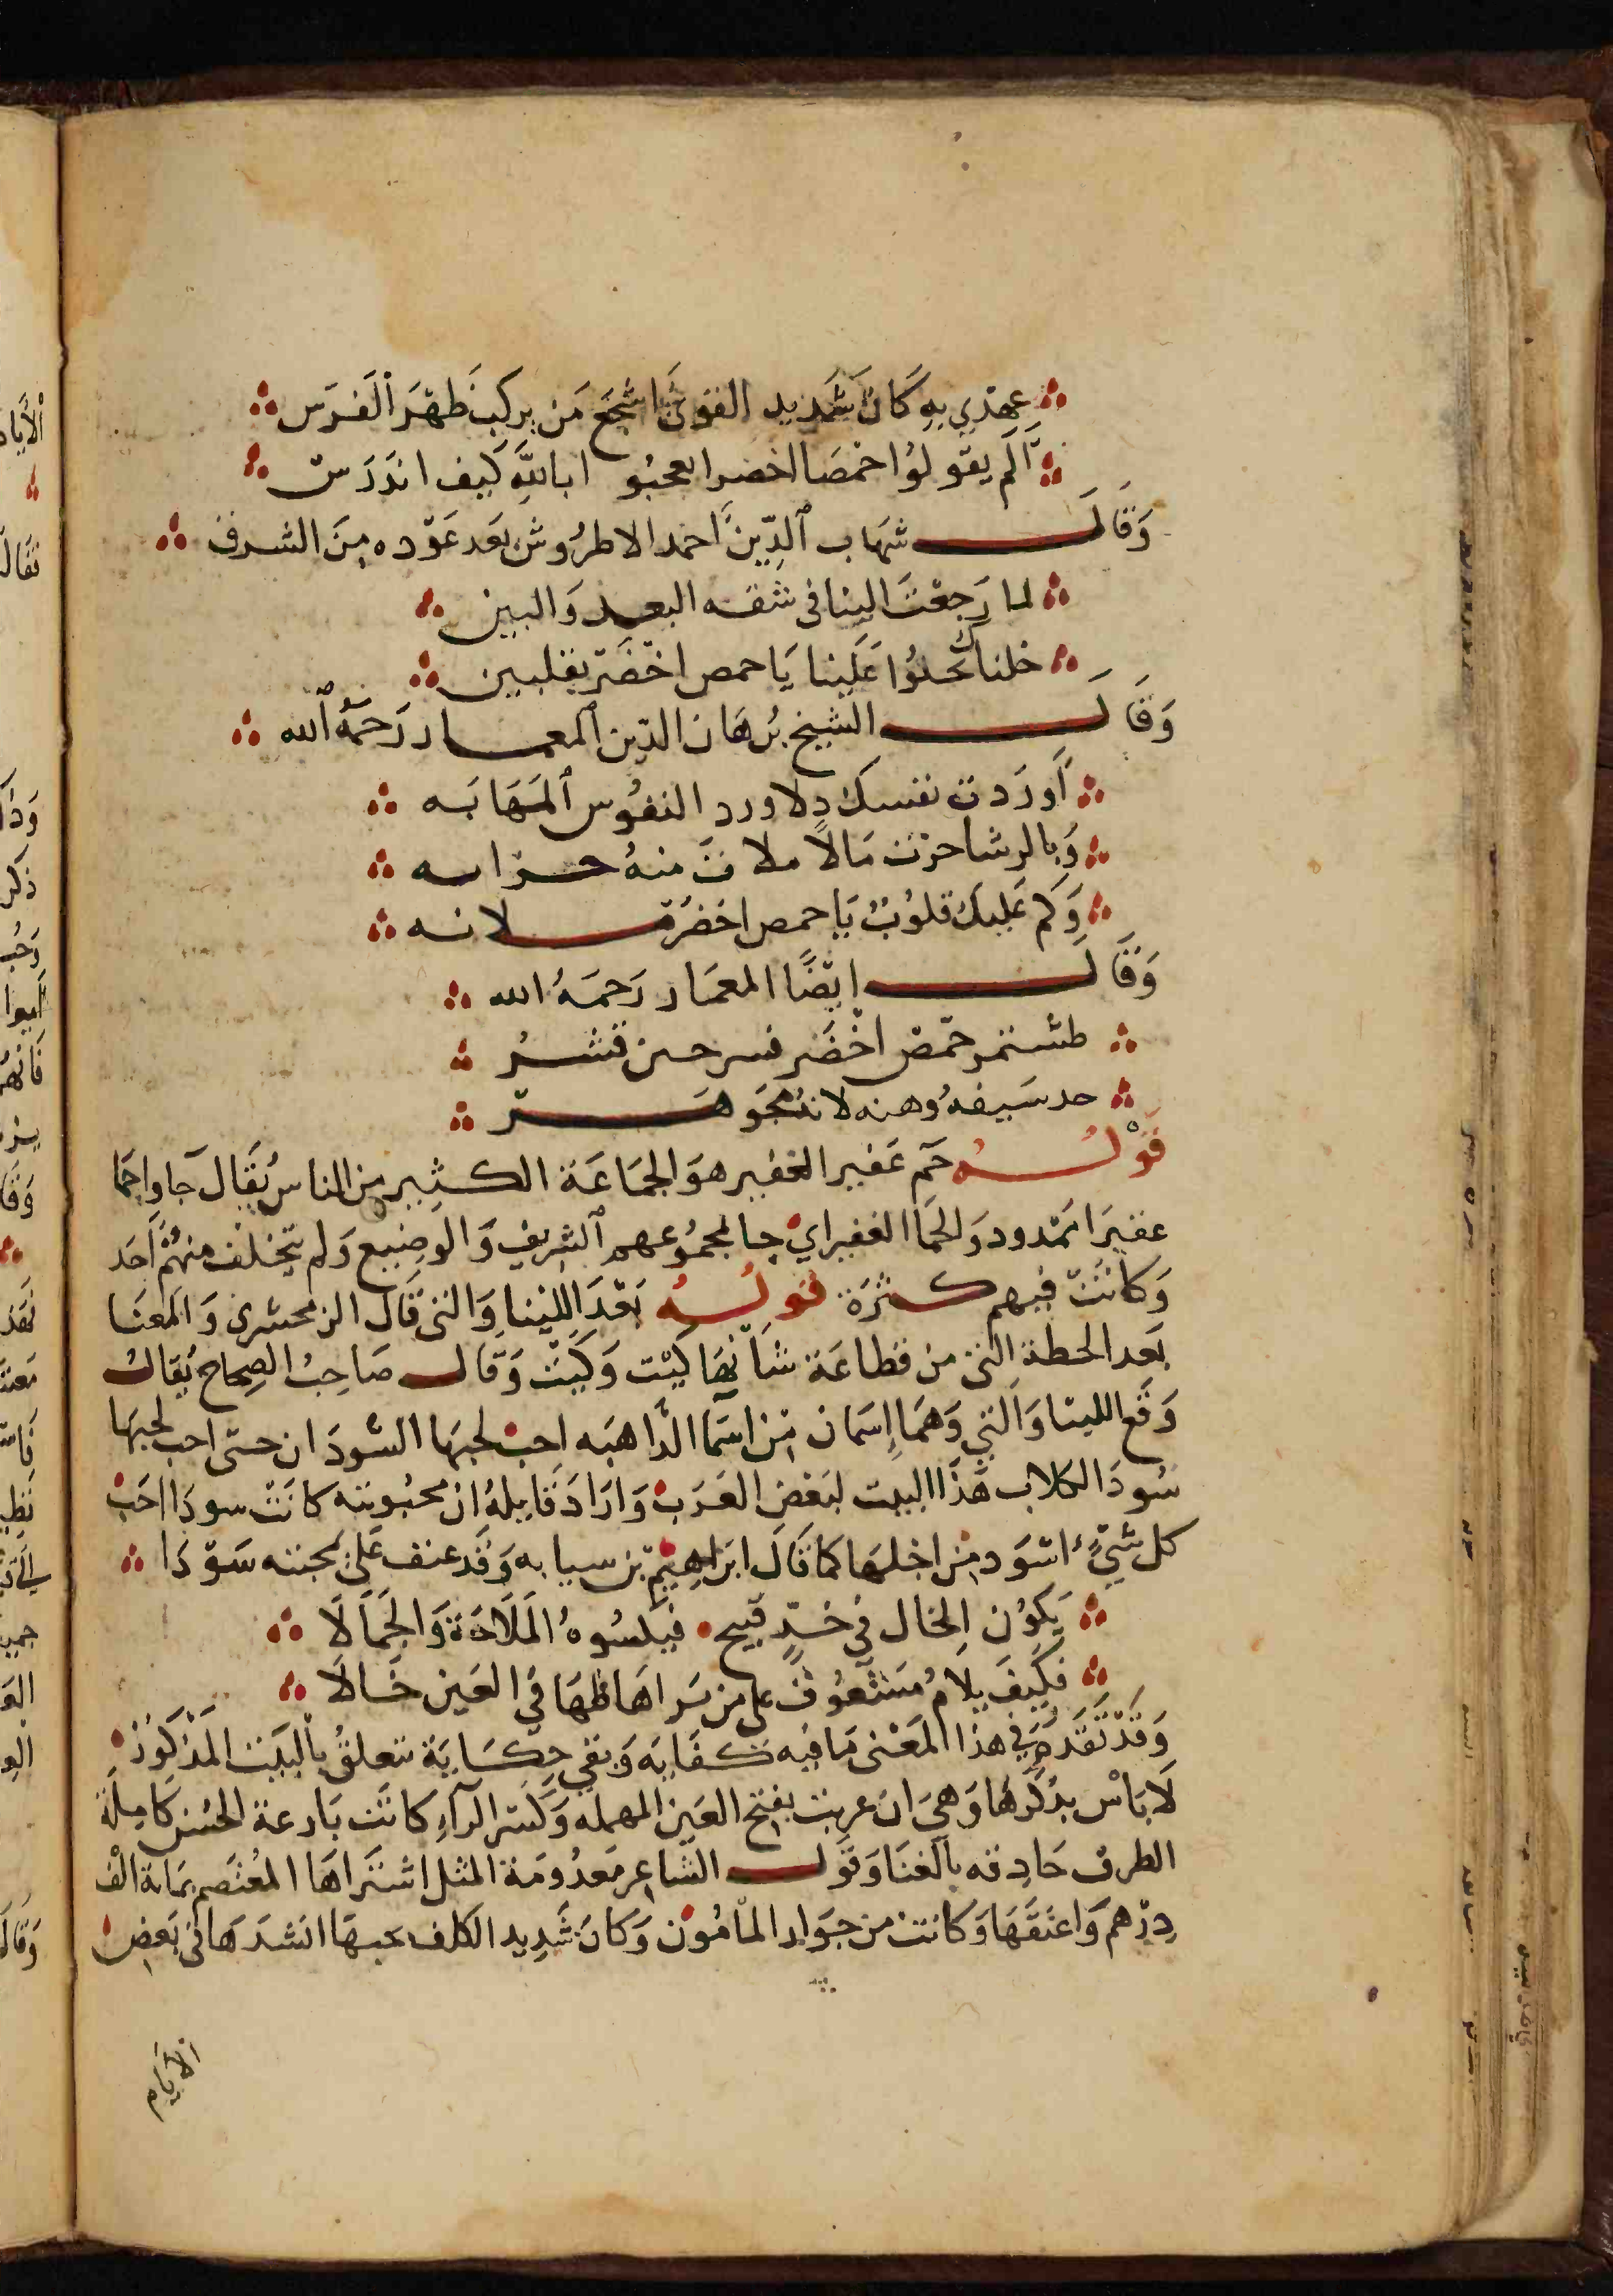 عهدي به كان شديد القوى اشجع من يركب ظهر الفرس
الم يقولوا حمصا اخضرا تعجبوا بالله كيف اندرس
وقال شهاب الدين احمد الاطروش بعد عوده من الشرف
لما رجعت الينا في شقه البعد والبين
خلناك تحنوا علينا يا حمص اخضر بقلبين
وقال الشيخ برهان الدين المعمار رحمه الله
اوردت نفسك دلا ورد النفوس المهابه
وبالرشا حزت مالا ملات منه حرابه
وكم عليك قلوب يا حمص اخضر ملانه
وقال ايضا المعمار رحمه الله
طشتمر حمص اخضر حين قشر
حد سيفه وهنه لانه تجوهر
قوله جم غفير الغفير هو الجماعة الكثير من الناس يقال جاوا جما
غفيرا ممدود والجما الغفير اي جا مجموعهم الشريف والوضيع ولم يتخلف منهم احد
وكانت فيهم كثرة قوله بعد اللتيا والتى قال الزمخشرى والمعنا
بعد الخطة التى من فظاعة شانها كيت وكيت وقال صاحب الصحاح يقال
وقع اللتيا والتي وهما اسمان من اسما الداهيه احب لحبها السودان حتى احب لحبها
سود الكلاب هذا البيت لبعض العرب واراد قايله ان محبوبته كانت سودا احب
كل شيء اسود من اجلها كما قال ابراهيم بن سيابه وقد عنف على محبته سودا
يكون الخال في خد قبيح فيكسوه الملاحة والجمالا
فكيف يلام مشعوف على من يراها كلها في العين خالا
وقد تقدم في هذا المعنى ما فيه كفايه وبقي حكاية تتعلق بالبيت المذكور
لا باس بذكرها وهي ان عريب بفتح العين المهمله وكسر الرآء كانت بارعة الحسن كاملة
الطرف حادقه بالغنا وقول الشاعر معدومة المثل اشتراها المعتصم بماية الف
درهم واعتقها وكانت من جوار المامون وكان شديد الكلف بحبها انشدها في بعض
الايام